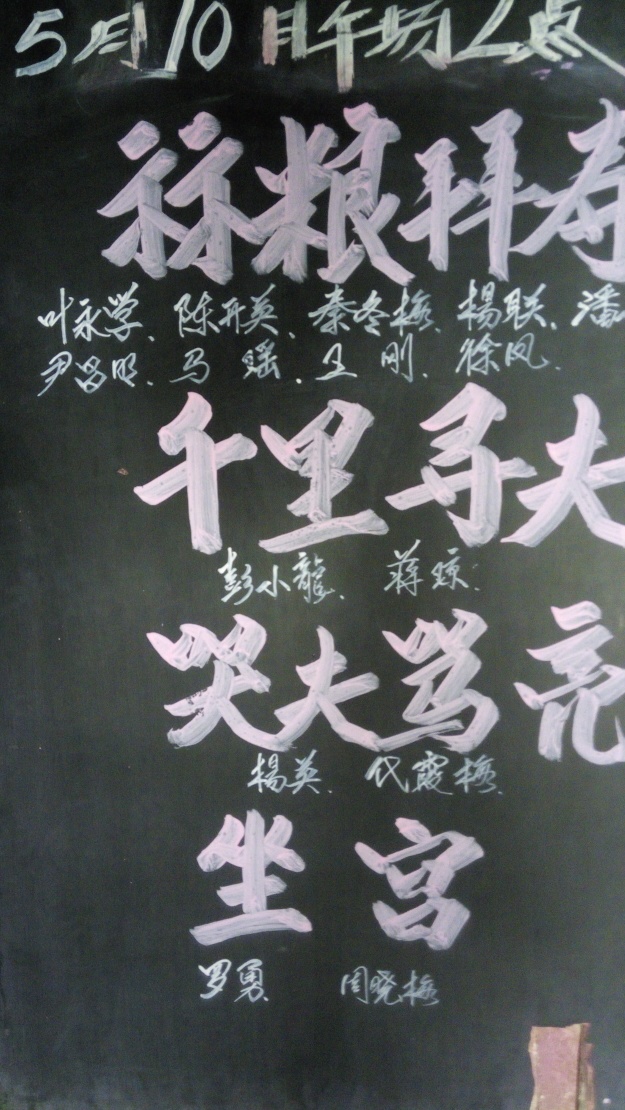 5月10日午场2点
祘粮拜寿
叶永学、陈开英、秦冬梅、楊联、潘
尹昌明、马 瑶、王 刚、徐凤
千里寻夫
彭小龍、蒋琼
哭夫骂亮
楊英、代霞梅
坐宫
罗勇 周晓梅